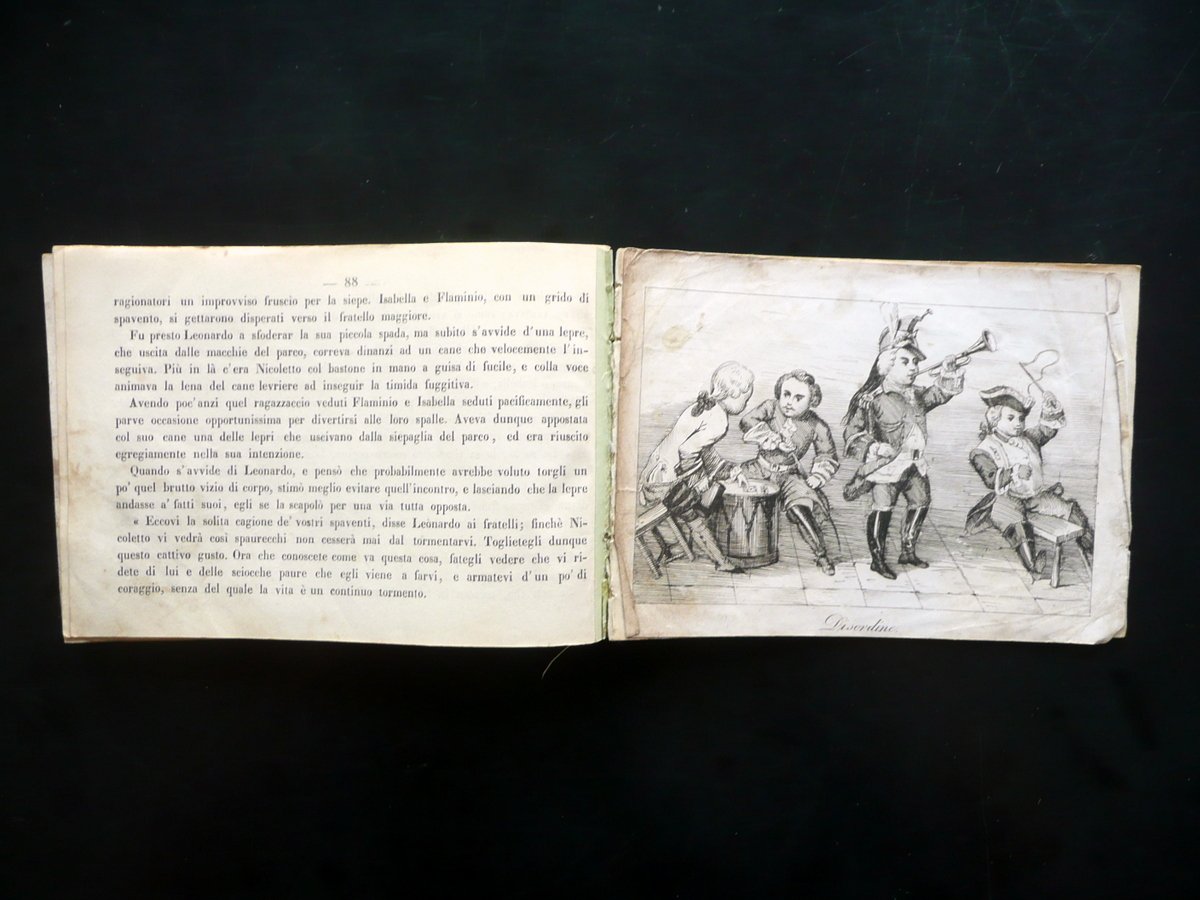 — 88 —
ragionatori un improvviso fruscio per la siepe. Isabella e Flaminio, con un grido di
spavento, si gettarono disperati verso il fratello maggiore.
Fu presto Leonardo a sfoderar la sua piccola spada, ma subito s'avvide d'una lepre,
che uscita dalle macchie del parco, correva dinanzi ad un cane che velocemente l'in-
seguiva. Più in là c'era Nicoletto col bastone in mano a guisa di fucile, e colla voce
animava la lena del cane levriere ad inseguir la timida fuggitiva.
Avendo poc'anzi quel ragazzaccio veduti Flaminio e Isabella seduti pacificamente, gli
parve occasione opportunissima per divertirsi alle loro spalle. Aveva dunque appostata
col suo cane una delle lepri che uscivano dalla siepaglia del parco, ed era riuscito
egregiamente nella sua intenzione.
Quando s'avvide di Leonardo, e pensò che probabilmente avrebbe voluto torgli un
po' quel brutto vizio di corpo, stimò meglio evitare quell'incontro, e lasciando che la lepre
andasse a' fatti suoi, egli se la scapolò per una via tutta opposta.
« Eccovi la solita cagione de' vostri spaventi, disse Leonardo ai fratelli; finchè Ni-
coletto vi vedrà così spaurecchi non cesserà mai dal tormentarvi. Toglietegli dunque
questo cattivo gusto. Ora che conoscete come va questa cosa, fategli vedere che vi ri-
dete di lui e delle sciocche paure che egli viene a farvi, e armatevi d'un po' di
coraggio, senza del quale la vita è un continuo tormento.
Disordine.